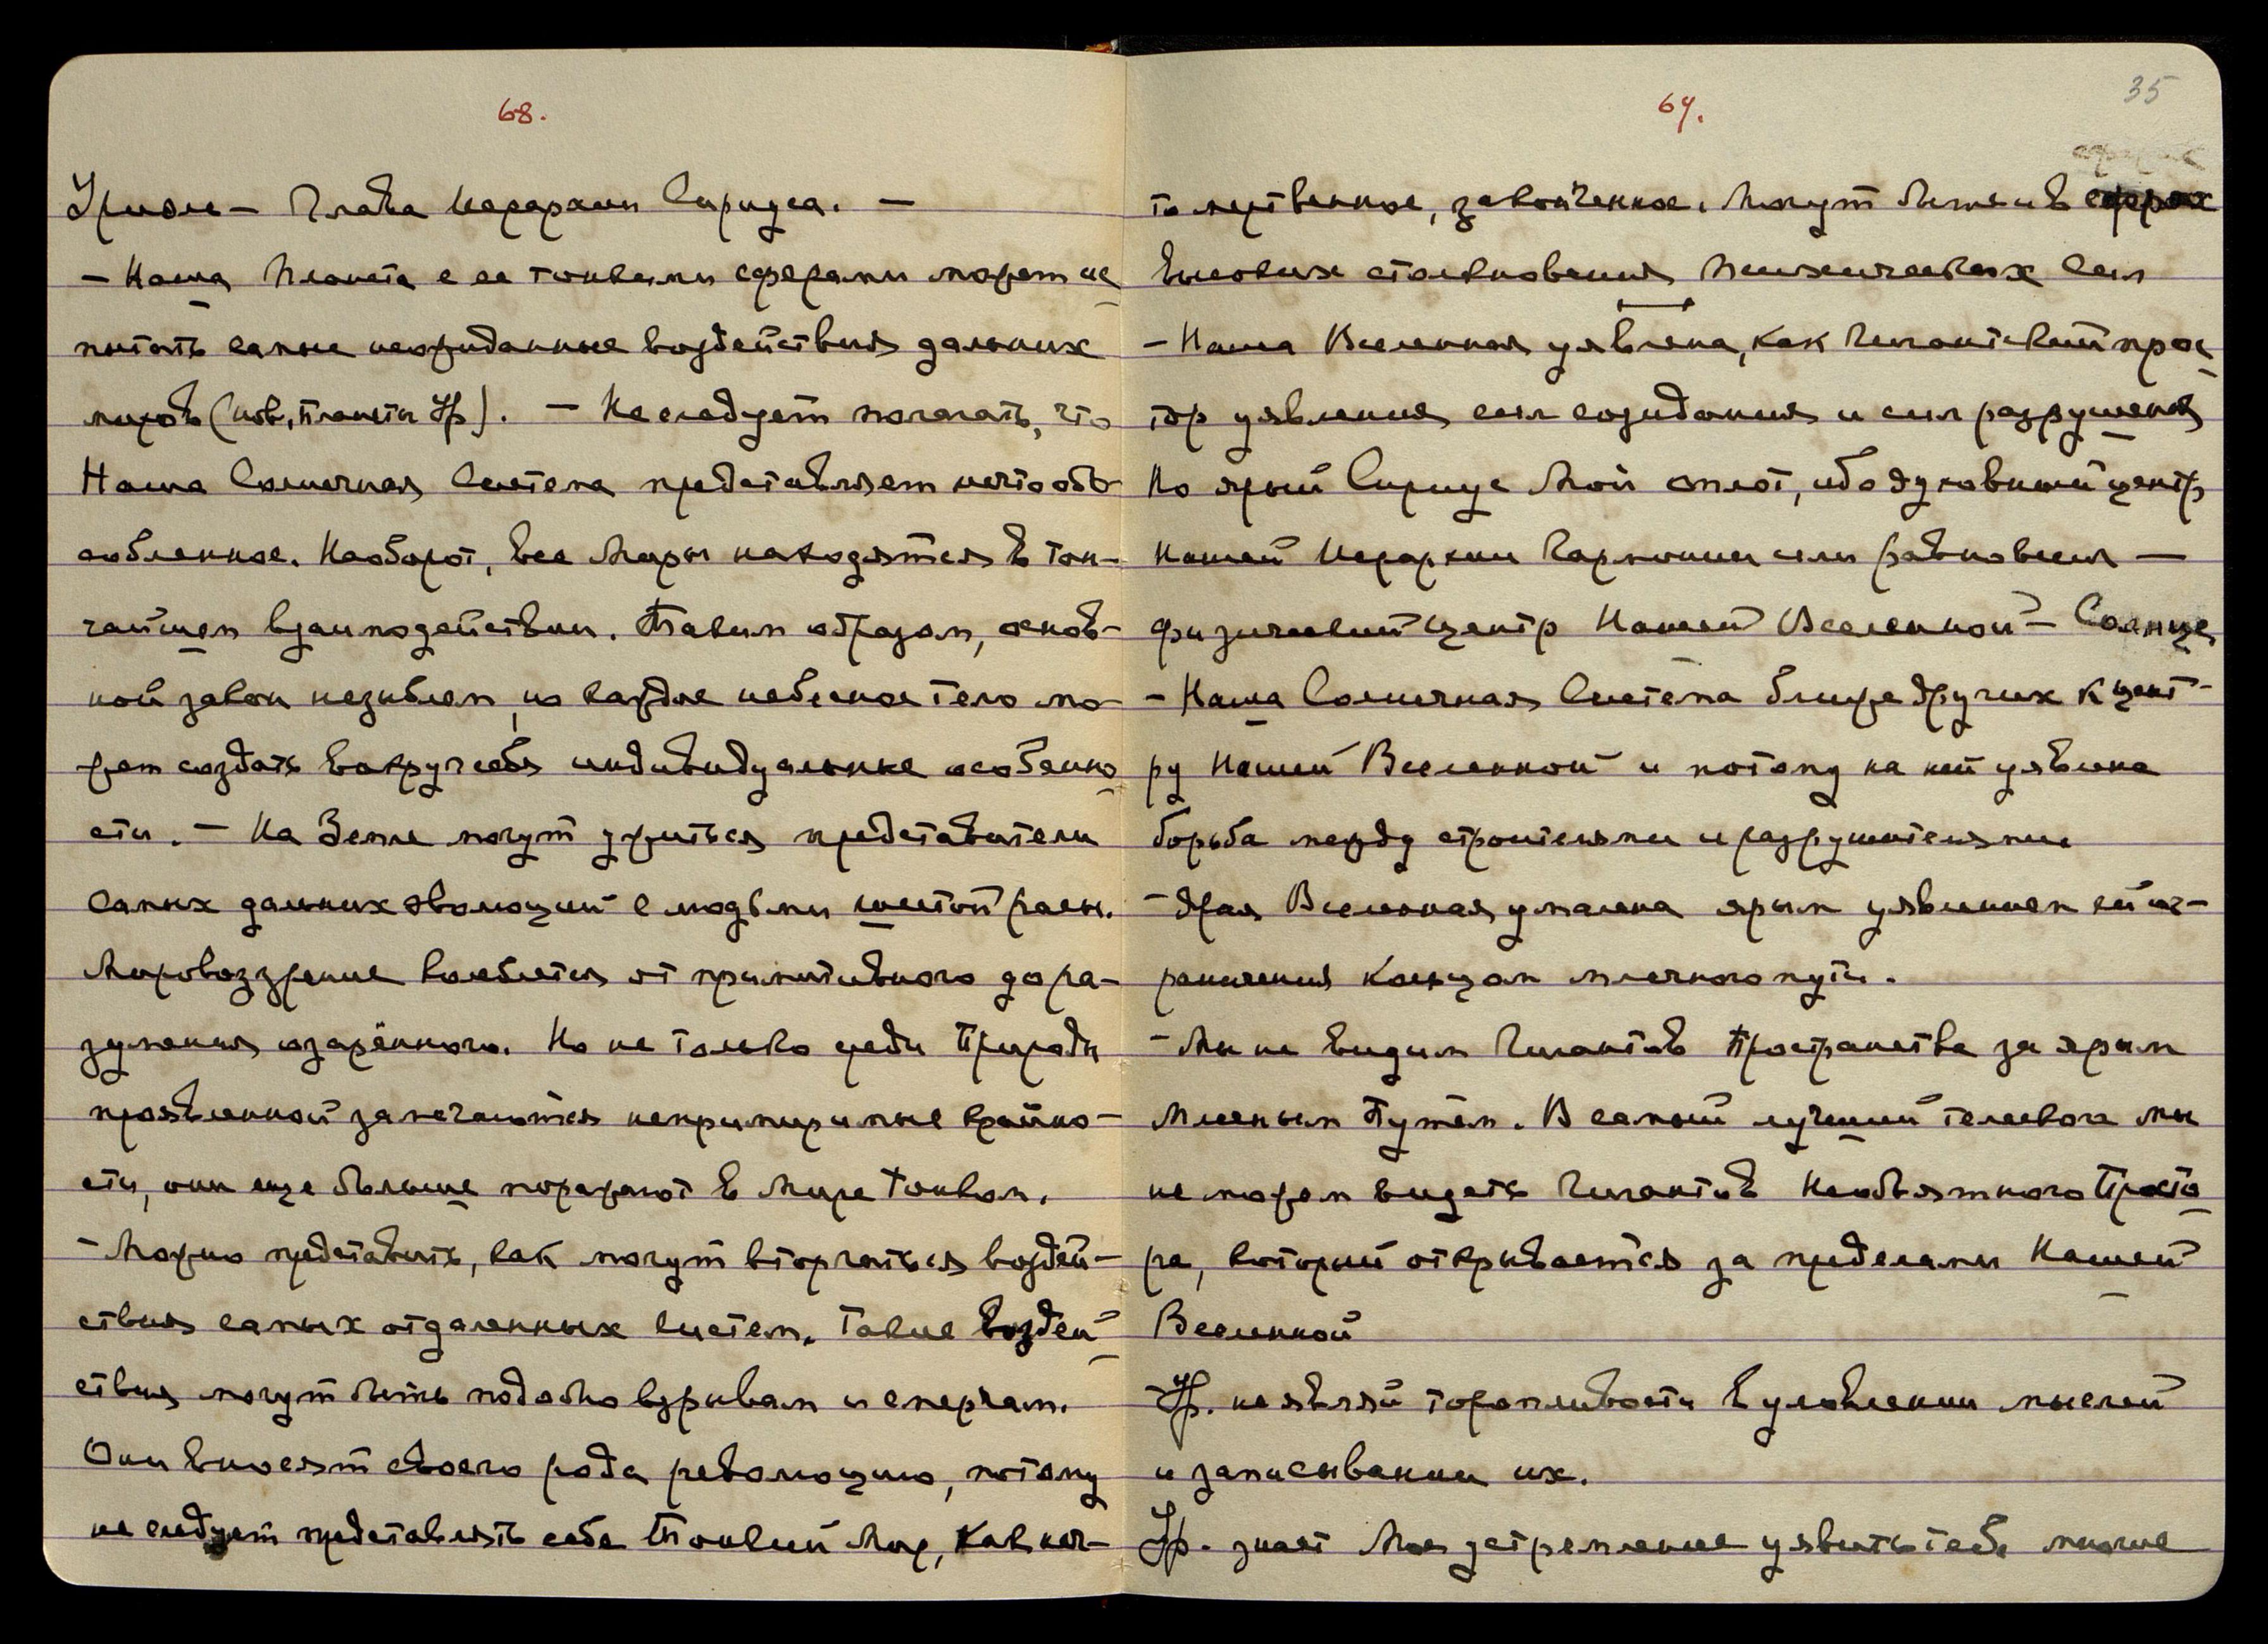 68.
Уриил — Глава Иерархии Сириуса. —
— Наша Планета с ее тонкими сферами может ис
пытать самые неожиданные воздействия дальних
миров (нов. планеты Ур). — Не следует полагать, что
Наша Солнечная Система представляет нечто обо-
собленное. Наоборот, все Миры находятся в тон-
чайшем взаимодействии. Таким образом, основ-
ной закон незыблем, но каждое небесное тело мо-
жет создать вокруг себя индивидуальные особенно
сти. — На Земле могут ужиться представители
самых дальних эволюций с людьми шестой расы.
Мировоззрение колеблется от примитивного до ра-
зумения озарённого. Но не только среди Природы
проявленной замечаются непримиримые крайно-
сти, они еще больше поражают в Мире Тонком.
— Можно представить, как могут вторгаться воздей-
ствия самых отдаленных систем. Такие воздей
ствия могут быть подобно взрывам и смерчам.
Они вносят своего рода революцию, потому
не следует представлять себе Тонкий Мир, как неч-
35
69.
то мертвенное, законченное. Могут быть и в сферах
высоких столкновения психических сил
— Наша Вселенная уявлена, как Гигантский прос
тор уявления сил созидания и сил разрушения
Но ярый Сириус Мой оплот, ибо духовный центр
Нашей Иерархии Гармонии или равновесия —
физический центр Нашей Вселенной — Солнце
— Наша Солнечная Система ближе других к цент-
ру Нашей Вселенной и потому на ней уявлена
борьба между строителями и разрушителями
— Ярая Вселенная умалена ярым уявлением ей ог-
раничения Кольцом млечного пути.
— Мы не видим Гигантов Пространства за ярым
Млечным Путем. В самый лучший телескоп мы
не можем видеть Гигантов Необъятного Просто
ра, который открывается за пределами Нашей
Вселенной
— Ур. не являй торопливости в уловлении мыслей
и записывании их.
Ур. знает Мое устремление уявить тебе многие